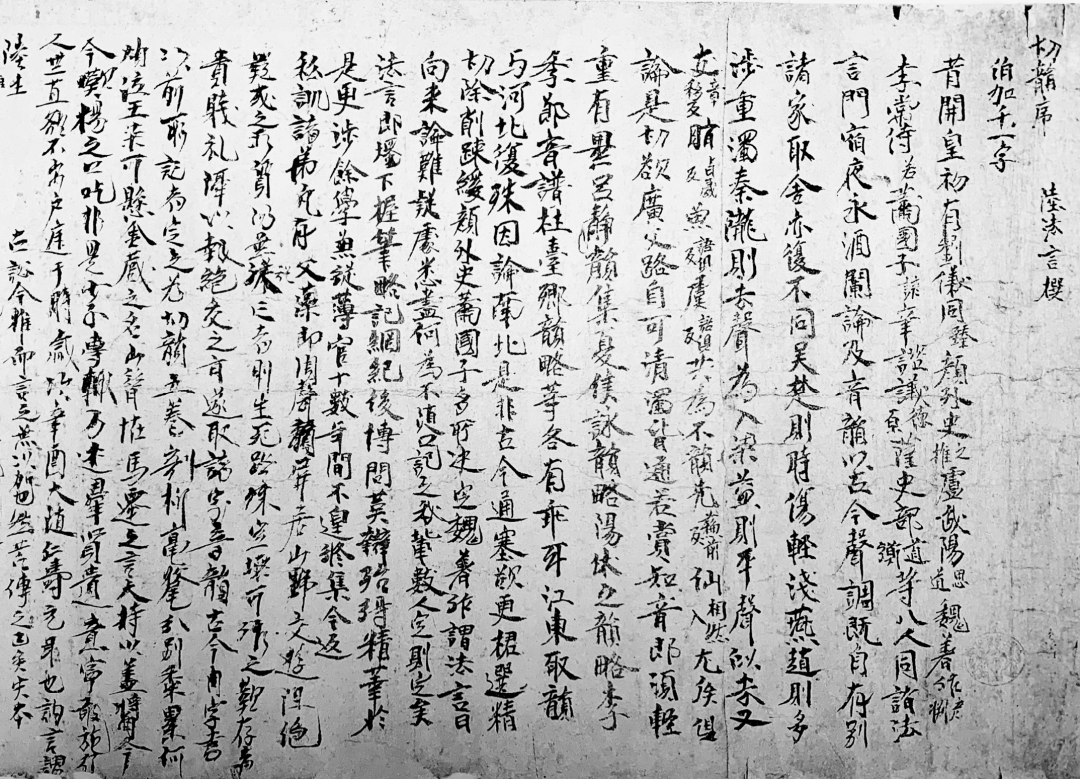 切韻序 陸法言撰
伯加千一字
昔開皇初有劉儀同臻顏外史之推盧武陽思道魏著作彥淵
李常侍若蕭國子該辛諮議德源薛吏部道衡等八人同詣法
言門宿夜永酒闌論及音韻以古今聲調既自有別
諸家取舍亦復不同吳楚則時傷輕淺燕趙則多
涉重濁秦隴則去聲為入梁益則平聲似去又
支章移反脂反魚語居反虞語俱反共為不韻先蘇前反仙相然反尤侯俱
論是切欲廣文路自可清濁皆通若賞知音即須輕
重有異呂靜韻集夏侯詠韻略陽休之韻略李
季節音譜杜臺卿韻略等各有乖互江東取韻
与河北復殊因論南北是非古今通塞欲更捃選精
切除削疎緩顏外史蕭國子多所決定魏著作謂法言曰
向來論難疑處悉盡何為不隨口記之我輩數人定則定矣
法言即燭下握筆略記綱紀後博問英辯殆得精華於
是更涉餘學兼從薄宦十數年間不遑修集今返
私訓諸弟凡有文藻即須聲韻屏居山野交遊阻絕
疑或之所質仍無從亡者則生死路殊空懷可作之歎存者
貴賤礼隔以報絕交之旨遂取諸家音韻古今字書
以前所記者定之為切韻五卷剖析毫釐分別黍累何
煩泣玉未可懸金藏之名山昔怪馬遷之言大持以蓋醬今
歎揚之口吃非是小子專輒乃述群賢遺意寧敢施行
人世直欲不出戶庭于時歲次辛酉大隋仁壽元年也訥言謂
陸生